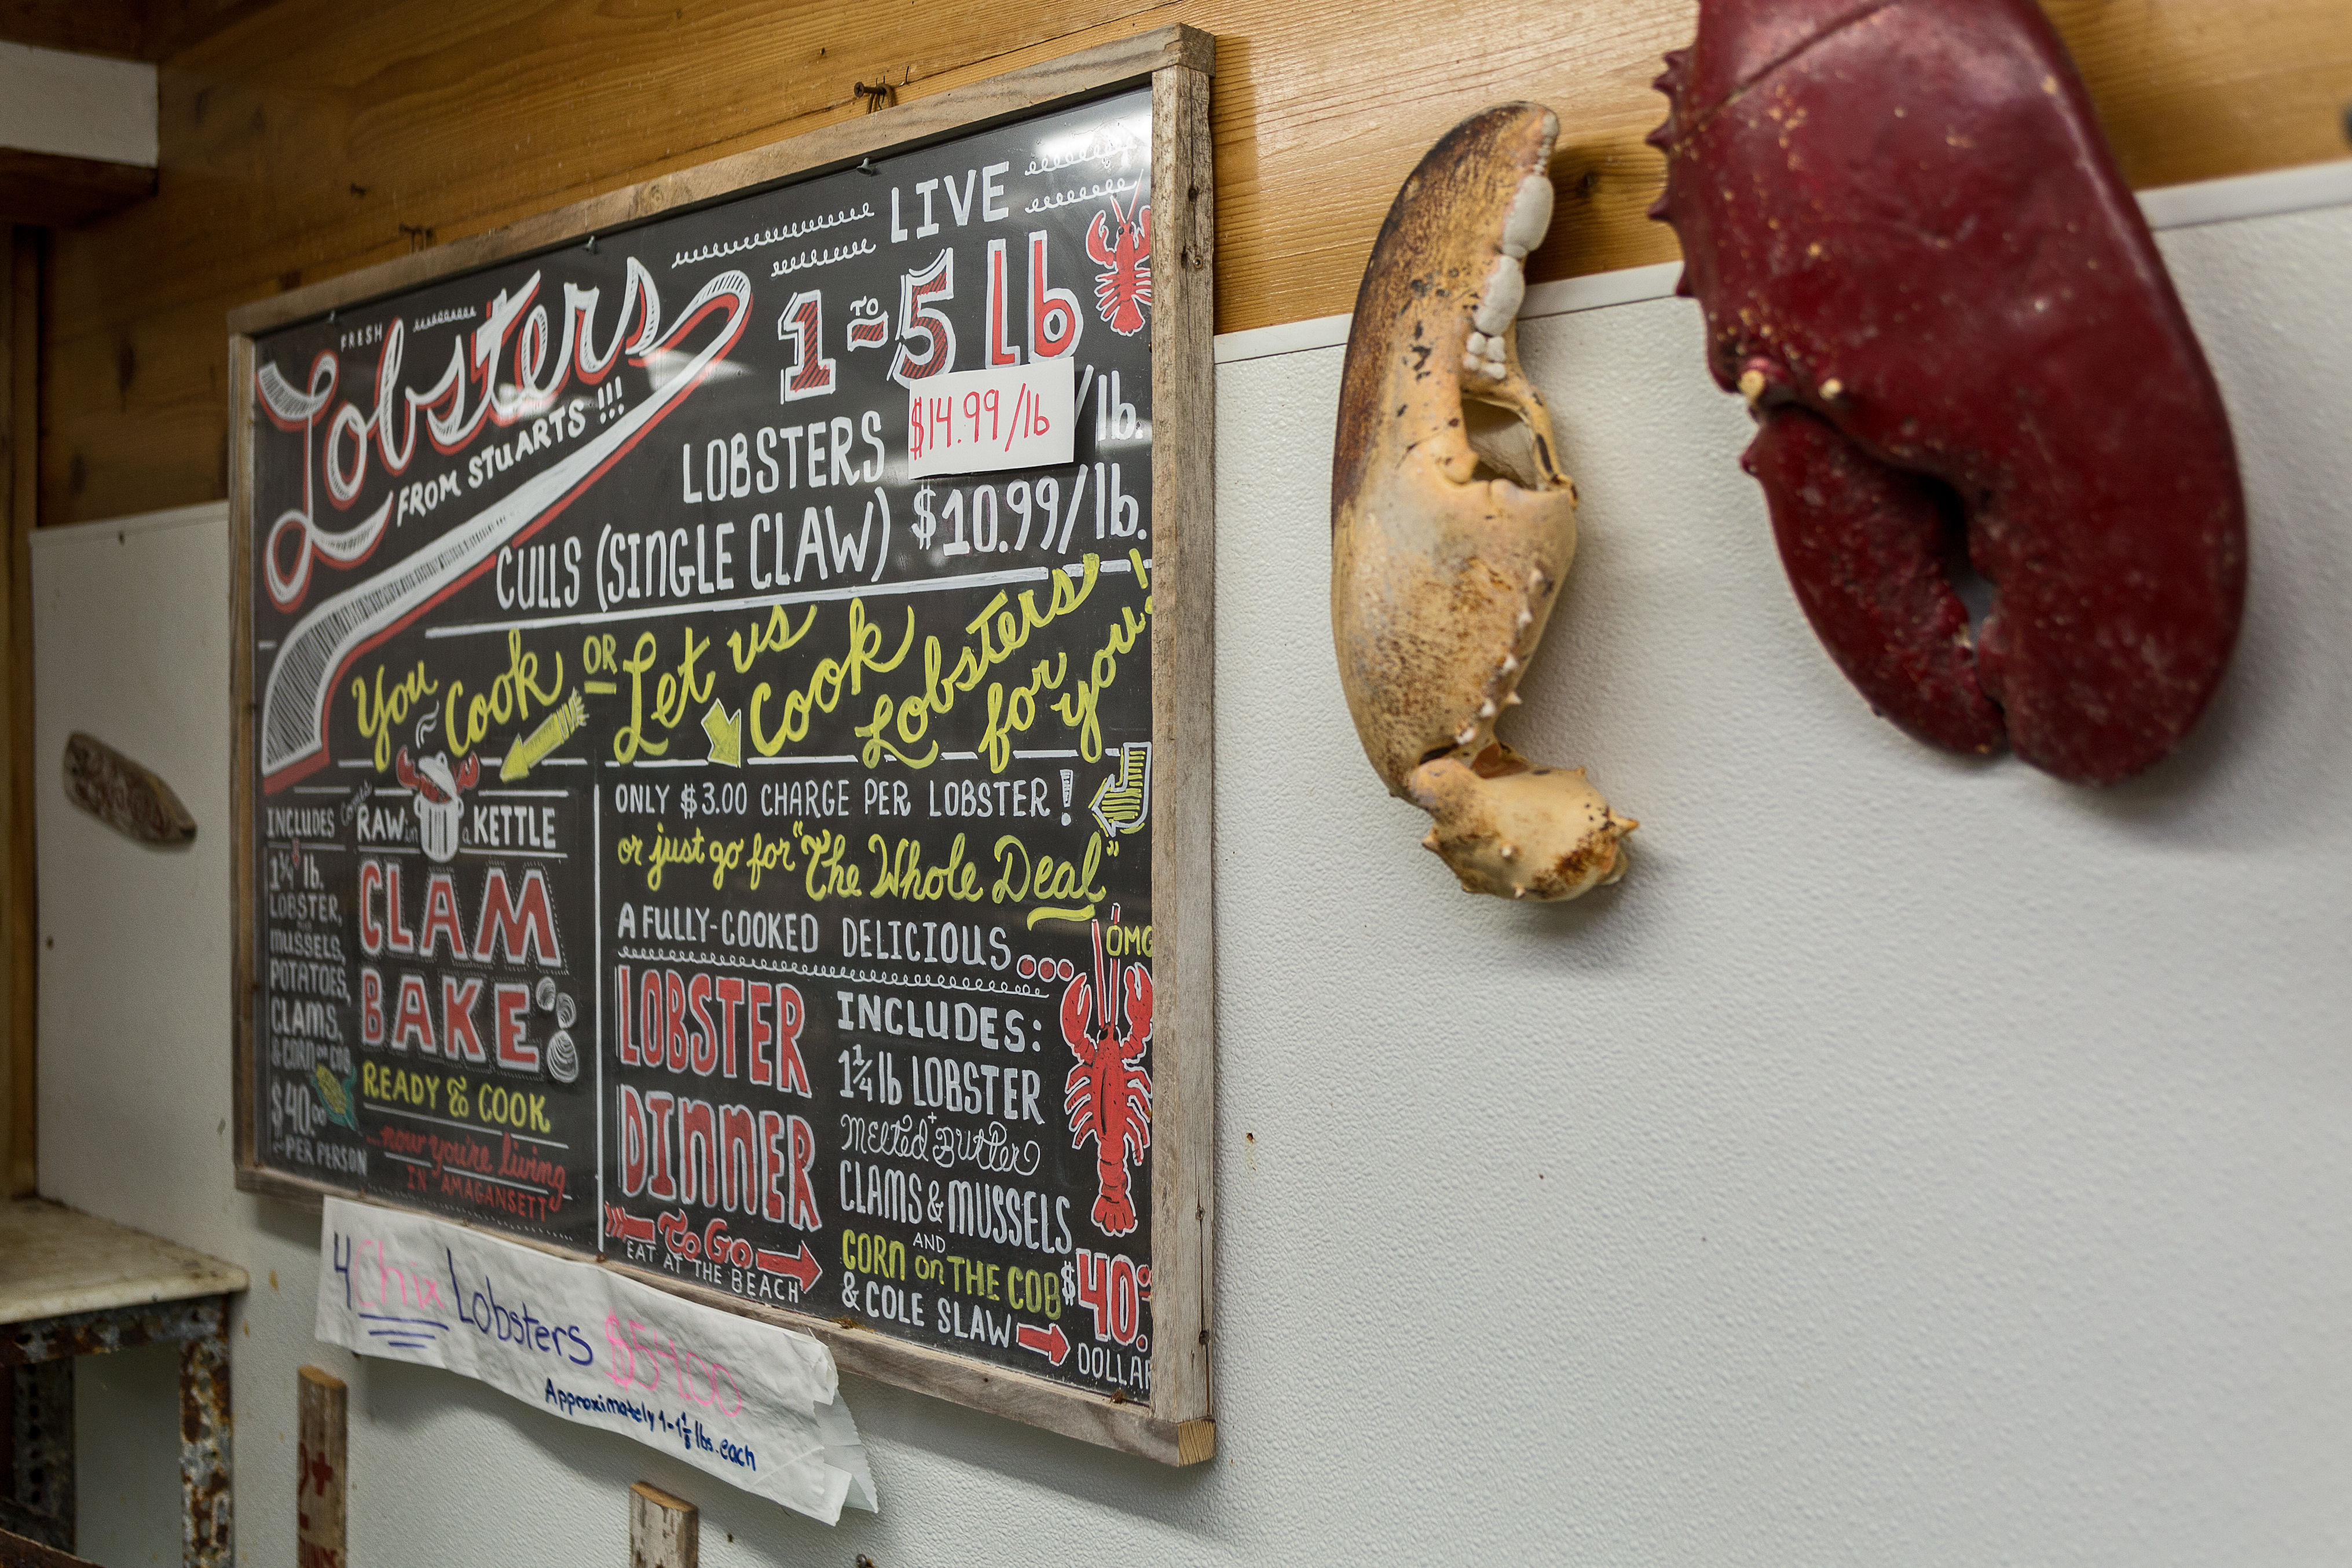 FRESH
Lobsters
FROM STUARTS !!!
LIVE
1 TO 5 lb
LOBSTERS $14.99/lb /lb.
CULLS (SINGLE CLAW) $10.99/lb.
You Cook OR Let us Cook Lobsters for you!
INCLUDES
1 1/4 lb.
LOBSTER,
MUSSELS,
POTATOES,
CLAMS,
& CORN on COB
$40.00
PER PERSON
Comes
RAW in a KETTLE
CLAM
BAKE
READY TO COOK
...now you're living
IN AMAGANSETT
ONLY $3.00 CHARGE PER LOBSTER!
or just go for "The Whole Deal"
A FULLY-COOKED DELICIOUS...
OMG
LOBSTER
DINNER
To Go
EAT AT THE BEACH
INCLUDES:
1 1/4 lb LOBSTER
+
Melted Butter
CLAMS & MUSSELS
AND
CORN on THE COB
& COLE SLAW
$40.
DOLLAR
4 Chix Lobsters $54.00
Approximately 1-1 1/8 lbs. each